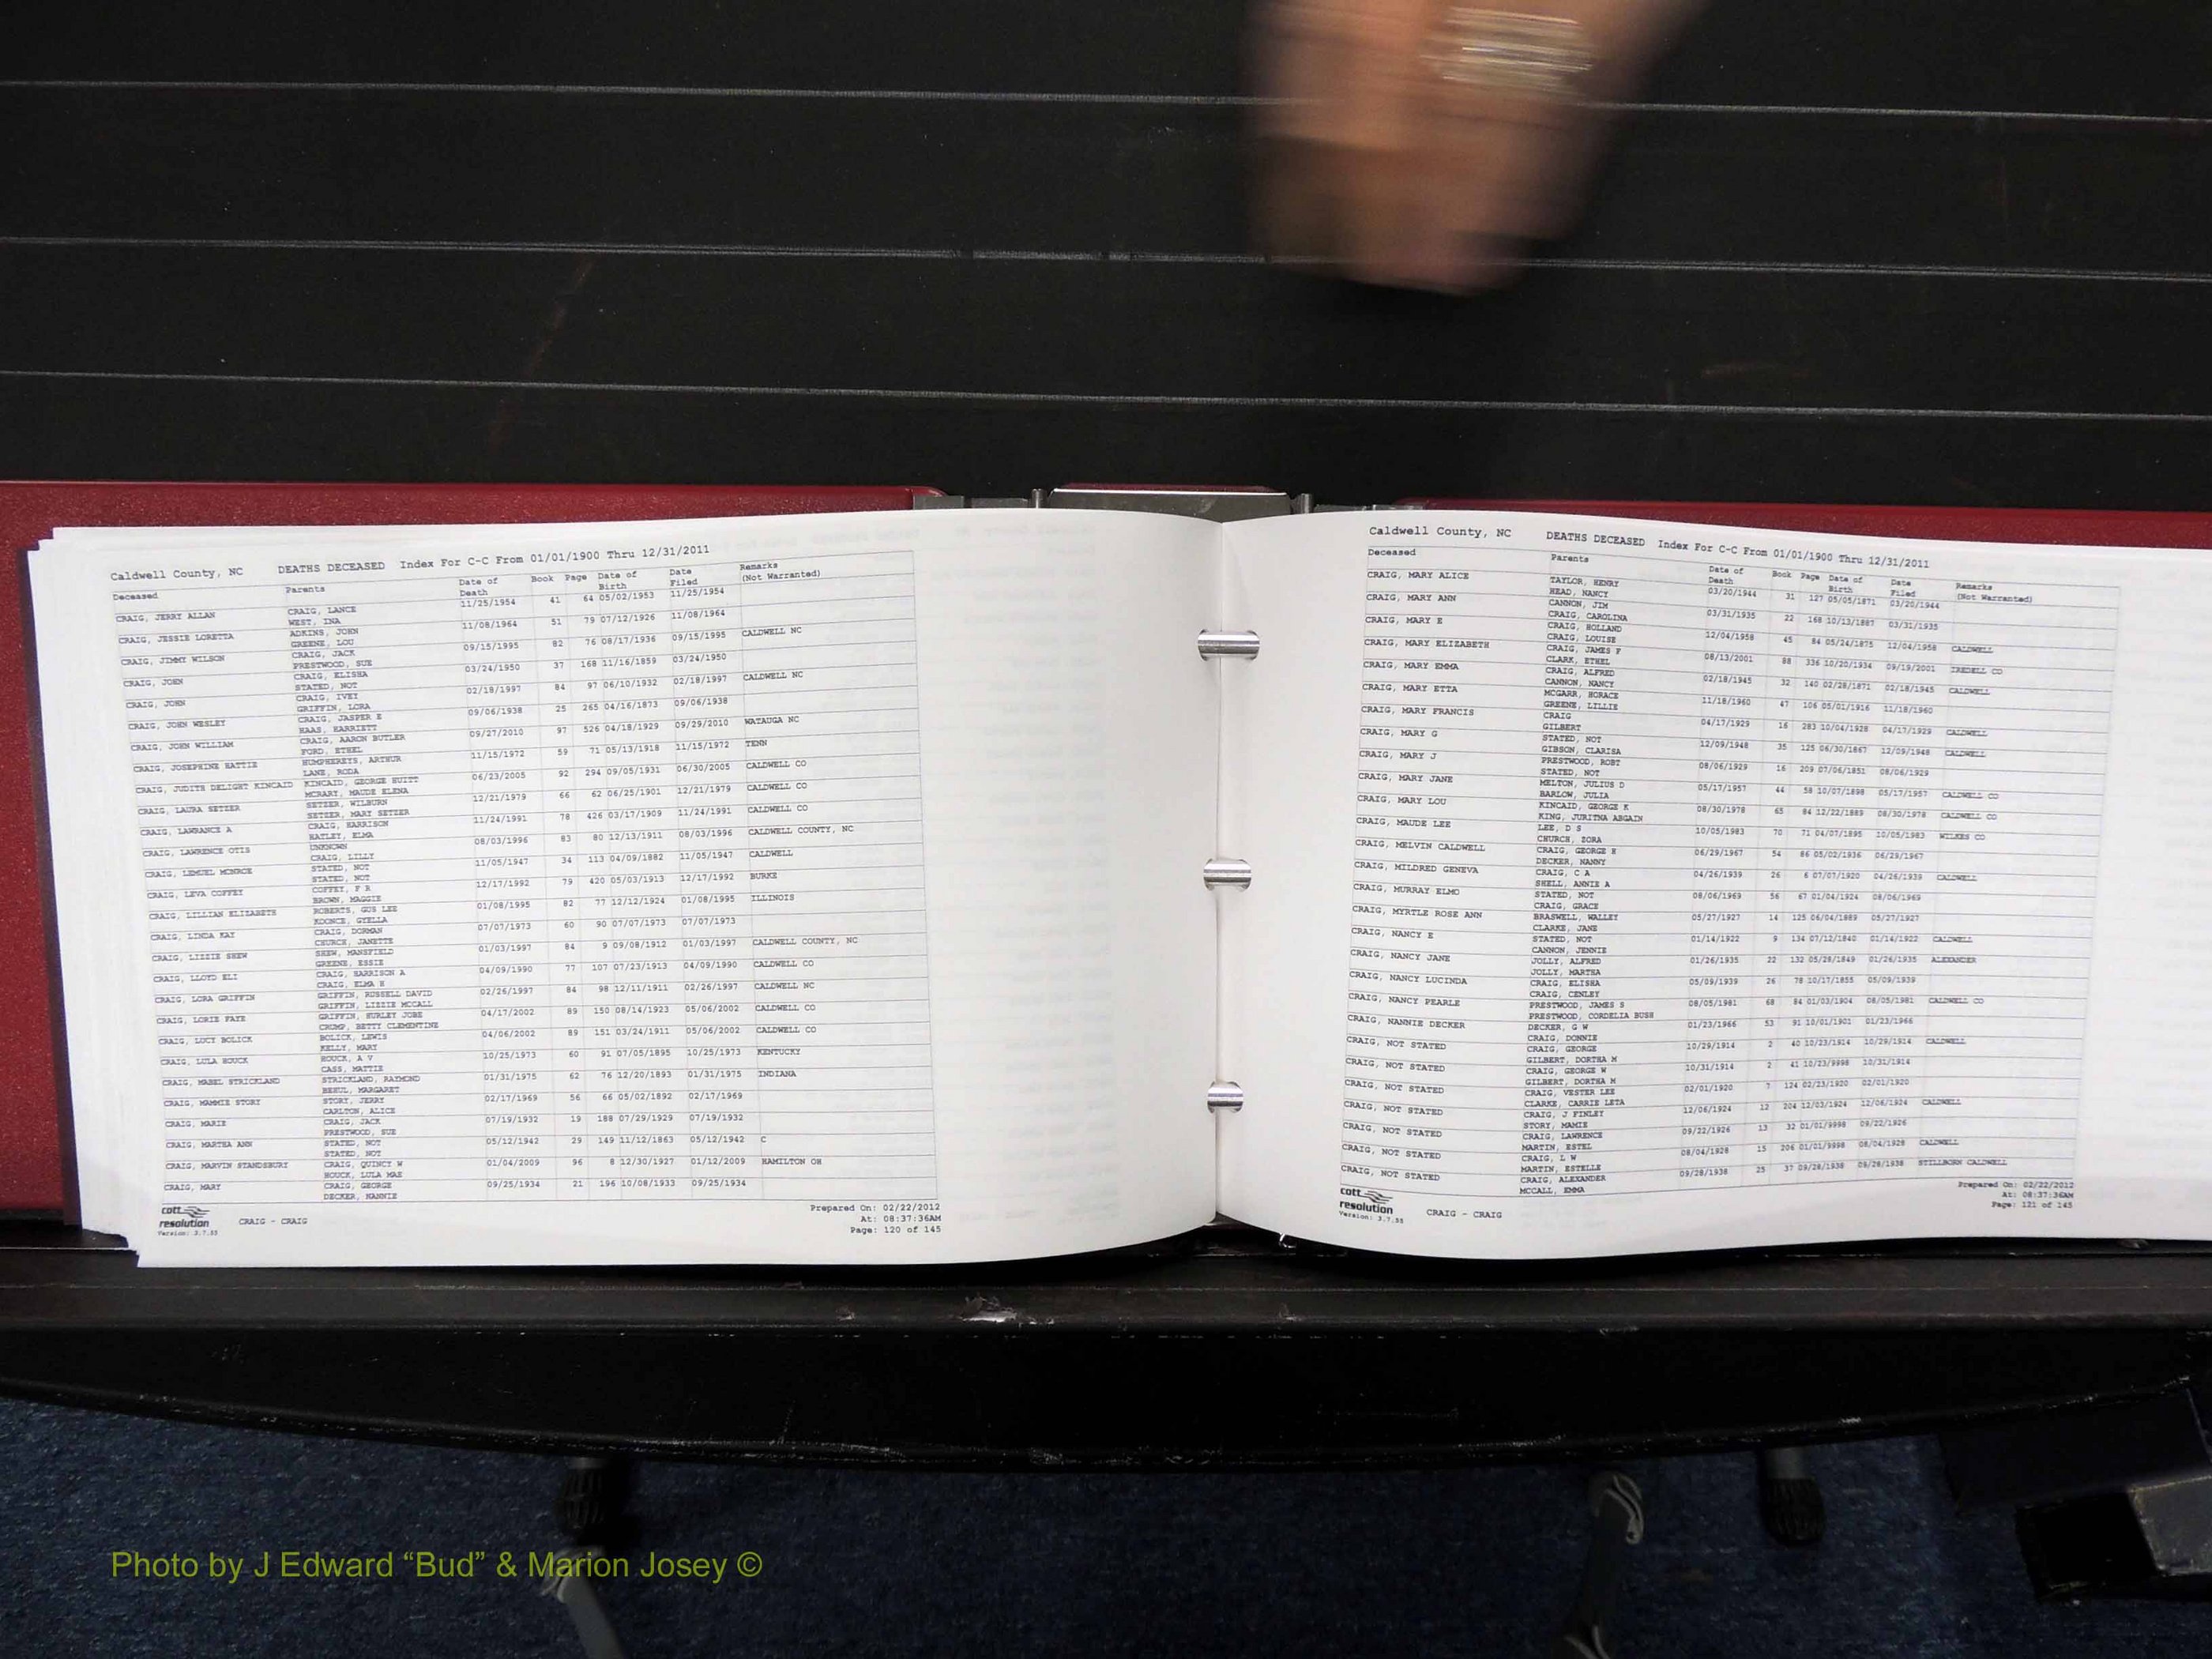 Caldwell County, NC DEATHS DECEASED Index For C-C From 01/01/1900 Thru 12/31/2011
Deceased Parents Date of Death Book Page Date of Birth Date Filed Remarks (Not Warranted)
CRAIG, JERRY ALLAN CRAIG, LANCE 11/25/1954 41 64 05/02/1953 11/25/1954
WEST, INA
CRAIG, JESSIE LORETTA ADKINS, JOHN 11/08/1964 51 79 07/12/1926 11/08/1964
GREENE, LOU
CRAIG, JIMMY WILSON CRAIG, JACK 09/15/1995 82 76 08/17/1936 09/15/1995 CALDWELL NC
PRESTWOOD, SUE
CRAIG, JOHN CRAIG, ELISHA 03/24/1950 37 168 11/16/1859 03/24/1950
STATED, NOT
CRAIG, JOHN CRAIG, IVEY 02/18/1997 84 97 06/10/1932 02/18/1997 CALDWELL NC
GRIFFIN, LORA
CRAIG, JOHN WESLEY CRAIG, JASPER E 09/06/1938 25 265 04/16/1873 09/06/1938
HAAS, HARRIETT
CRAIG, JOHN WILLIAM CRAIG, AARON BUTLER 09/27/2010 97 526 04/18/1929 09/29/2010 WATAUGA NC
FORD, ETHEL
CRAIG, JOSEPHINE HATTIE HUMPHEREYS, ARTHUR 11/15/1972 59 71 05/13/1918 11/15/1972 TENN
LANE, RODA
CRAIG, JUDITH DELIGHT KINCAID KINCAID, GEORGE HUITT 06/23/2005 92 294 09/05/1931 06/30/2005 CALDWELL CO
MCRARY, MAUDE ELENA
CRAIG, LAURA SETZER SETZER, WILBURN 12/21/1979 66 62 06/25/1901 12/21/1979 CALDWELL CO
SETZER, MARY SETZER
CRAIG, LAWRANCE A CRAIG, HARRISON 11/24/1991 78 426 03/17/1909 11/24/1991 CALDWELL CO
HATLEY, ELMA
CRAIG, LAWRENCE OTIS UNKNOWN 08/03/1996 83 80 12/13/1911 08/03/1996 CALDWELL COUNTY, NC
CRAIG, LILLY
CRAIG, LEMUEL MONROE STATED, NOT 11/05/1947 34 113 04/09/1882 11/05/1947 CALDWELL
STATED, NOT
CRAIG, LEVA COFFEY COFFEY, F R 12/17/1992 79 420 05/03/1913 12/17/1992 BURKE
BROWN, MAGGIE
CRAIG, LILLIAN ELIZABETH ROBERTS, GUS LEE 01/08/1995 82 77 12/12/1924 01/08/1995 ILLINOIS
KOONCE, GYELLA
CRAIG, LINDA KAY CRAIG, DORMAN 07/07/1973 60 90 07/07/1973 07/07/1973
CHURCH, JANETTE
CRAIG, LIZZIE SHEW SHEW, MANSFIELD 01/03/1997 84 9 09/08/1912 01/03/1997 CALDWELL COUNTY, NC
GREENE, ESSIE
CRAIG, LLOYD ELI CRAIG, HARRISON A 04/09/1990 77 107 07/23/1913 04/09/1990 CALDWELL CO
CRAIG, ELMA H
CRAIG, LORA GRIFFIN GRIFFIN, RUSSELL DAVID 02/26/1997 84 98 12/11/1911 02/26/1997 CALDWELL NC
GRIFFIN, LIZZIE MCCALL
CRAIG, LORIE FAYE GRIFFIN, HURLEY JOBE 04/17/2002 89 150 08/14/1923 05/06/2002 CALDWELL CO
CRUMP, BETTY CLEMENTINE
CRAIG, LUCY BOLICK BOLICK, LEWIS 04/06/2002 89 151 03/24/1911 05/06/2002 CALDWELL CO
KELLY, MARY
CRAIG, LULA HOUCK HOUCK, A V 10/25/1973 60 91 07/05/1895 10/25/1973 KENTUCKY
CASS, MATTIE
CRAIG, MABEL STRICKLAND STRICKLAND, RAYMOND 01/31/1975 62 76 12/20/1893 01/31/1975 INDIANA
MARGARET
CRAIG, MAMMIE STORY STORY, JERRY 02/17/1969 56 66 05/02/1892 02/17/1969
CARLTON, ALICE
CRAIG, MARIE CRAIG, JACK 07/19/1932 19 188 07/29/1929 07/19/1932
PRESTWOOD, SUE
CRAIG, MARTHA ANN STATED, NOT 05/12/1942 29 149 11/12/1863 05/12/1942 C
STATED, NOT
CRAIG, MARVIN STANDSBURY CRAIG, QUINCY W 01/04/2009 96 8 12/30/1927 01/12/2009 HAMILTON OH
HOUCK, LULA MAE
CRAIG, MARY CRAIG, GEORGE 09/25/1934 21 196 10/08/1933 09/25/1934
DECKER, NANNIE
cott resolution
Version: 3.7.55
CRAIG - CRAIG
Prepared On: 02/22/2012
At: 08:37:36AM
Page: 120 of 145
Caldwell County, NC DEATHS DECEASED Index For C-C From 01/01/1900 Thru 12/31/2011
Deceased Parents Date of Death Book Page Date of Birth Date Filed Remarks (Not Warranted)
CRAIG, MARY ALICE TAYLOR, HENRY 03/20/1944 31 127 05/05/1871 03/20/1944
HEAD, NANCY
CRAIG, MARY ANN CANNON, JIM 03/31/1935 22 168 10/13/1887 03/31/1935
CRAIG, CAROLINA
CRAIG, MARY E CRAIG, HOLLAND 12/04/1958 45 84 05/24/1875 12/04/1958 CALDWELL
CRAIG, LOUISE
CRAIG, MARY ELIZABETH CRAIG, JAMES F 08/13/2001 88 336 10/20/1934 09/19/2001 IREDELL CO
CLARK, ETHEL
CRAIG, MARY EMMA CRAIG, ALFRED 02/18/1945 32 140 02/28/1871 02/18/1945 CALDWELL
CANNON, NANCY
CRAIG, MARY ETTA MCGARR, HORACE 11/18/1960 47 106 05/01/1916 11/18/1960
GREENE, LILLIE
CRAIG, MARY FRANCIS CRAIG 04/17/1929 16 283 10/04/1928 04/17/1929 CALDWELL
GILBERT
CRAIG, MARY G STATED, NOT 12/09/1948 35 125 06/30/1867 12/09/1948 CALDWELL
GIBSON, CLARISA
CRAIG, MARY J PRESTWOOD, ROBT 08/06/1929 16 209 07/06/1851 08/06/1929
STATED, NOT
CRAIG, MARY JANE MELTON, JULIUS D 05/17/1957 44 58 10/07/1898 05/17/1957 CALDWELL CO
BARLOW, JULIA
CRAIG, MARY LOU KINCAID, GEORGE K 08/30/1978 65 84 12/22/1889 08/30/1978 CALDWELL CO
KING, JURITNA ABGAIN
CRAIG, MAUDE LEE LEE, D S 10/05/1983 70 71 04/07/1895 10/05/1983 WILKES CO
CHURCH, ZORA
CRAIG, MELVIN CALDWELL CRAIG, GEORGE H 06/29/1967 54 86 05/02/1936 06/29/1967
DECKER, NANNY
CRAIG, MILDRED GENEVA CRAIG, C A 04/26/1939 26 6 07/07/1920 04/26/1939 CALDWELL
SHELL, ANNIE A
CRAIG, MURRAY ELMO STATED, NOT 08/06/1969 56 67 01/04/1924 08/06/1969
CRAIG, GRACE
CRAIG, MYRTLE ROSE ANN BRASWELL, WALLEY 05/27/1927 14 125 06/04/1889 05/27/1927
CLARKE, JANE
CRAIG, NANCY E STATED, NOT 01/14/1922 9 134 07/12/1840 01/14/1922 CALDWELL
CANNON, JENNIE
CRAIG, NANCY JANE JOLLY, ALFRED 01/26/1935 22 132 05/28/1849 01/26/1935 ALEXANDER
JOLLY, MARTHA
CRAIG, NANCY LUCINDA CRAIG, ELISHA 05/09/1939 26 78 10/17/1855 05/09/1939
CRAIG, CENLEY
CRAIG, NANCY PEARLE PRESTWOOD, JAMES S 08/05/1981 68 84 01/03/1904 08/05/1981 CALDWELL CO
PRESTWOOD, CORDELIA BUSH
CRAIG, NANNIE DECKER DECKER, G W 01/23/1966 53 91 10/01/1901 01/23/1966
CRAIG, DONNIE
CRAIG, NOT STATED CRAIG, GEORGE 10/29/1914 2 40 10/23/1914 10/29/1914 CALDWELL
GILBERT, DORTHA M
CRAIG, NOT STATED CRAIG, GEORGE W 10/31/1914 2 41 10/23/9998 10/31/1914
GILBERT, DORTHA M
CRAIG, NOT STATED CRAIG, VESTER LEE 02/01/1920 7 124 02/23/1920 02/01/1920
CLARKE, CARRIE LETA
CRAIG, NOT STATED CRAIG, J FINLEY 12/06/1924 12 204 12/03/1924 12/06/1924 CALDWELL
STORY, MAMIE
CRAIG, NOT STATED CRAIG, LAWRENCE 09/22/1926 13 32 01/01/9998 09/22/1926
MARTIN, ESTEL
CRAIG, NOT STATED CRAIG, L W 08/04/1928 15 206 01/01/9998 08/04/1928 CALDWELL
MARTIN, ESTELLE
CRAIG, NOT STATED CRAIG, ALEXANDER 09/28/1938 25 37 09/28/1938 09/28/1938 STILLBORN CALDWELL
MCCALL, EMMA
cott resolution
Version: 3.7.55
CRAIG - CRAIG
Prepared On: 02/22/2012
At: 08:37:36AM
Page: 121 of 145
Photo by J Edward “Bud” & Marion Josey ©